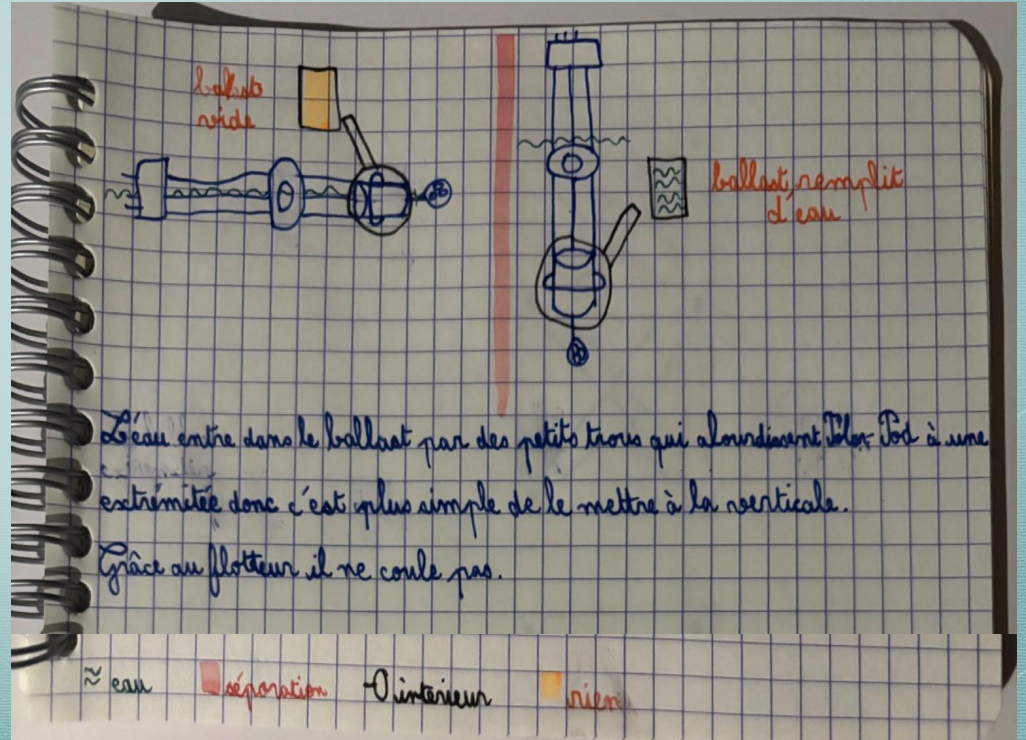 ballast
vide
ballast, remplit
d'eau
L'éau entre dans le ballast par des petits trous qui alourdissent Polar Pod à une
extrémitée donc c'est plus simple de le mettre à la verticale.
Grâce au flotteur il ne coule pas.
eau
séparation
interieur
rien